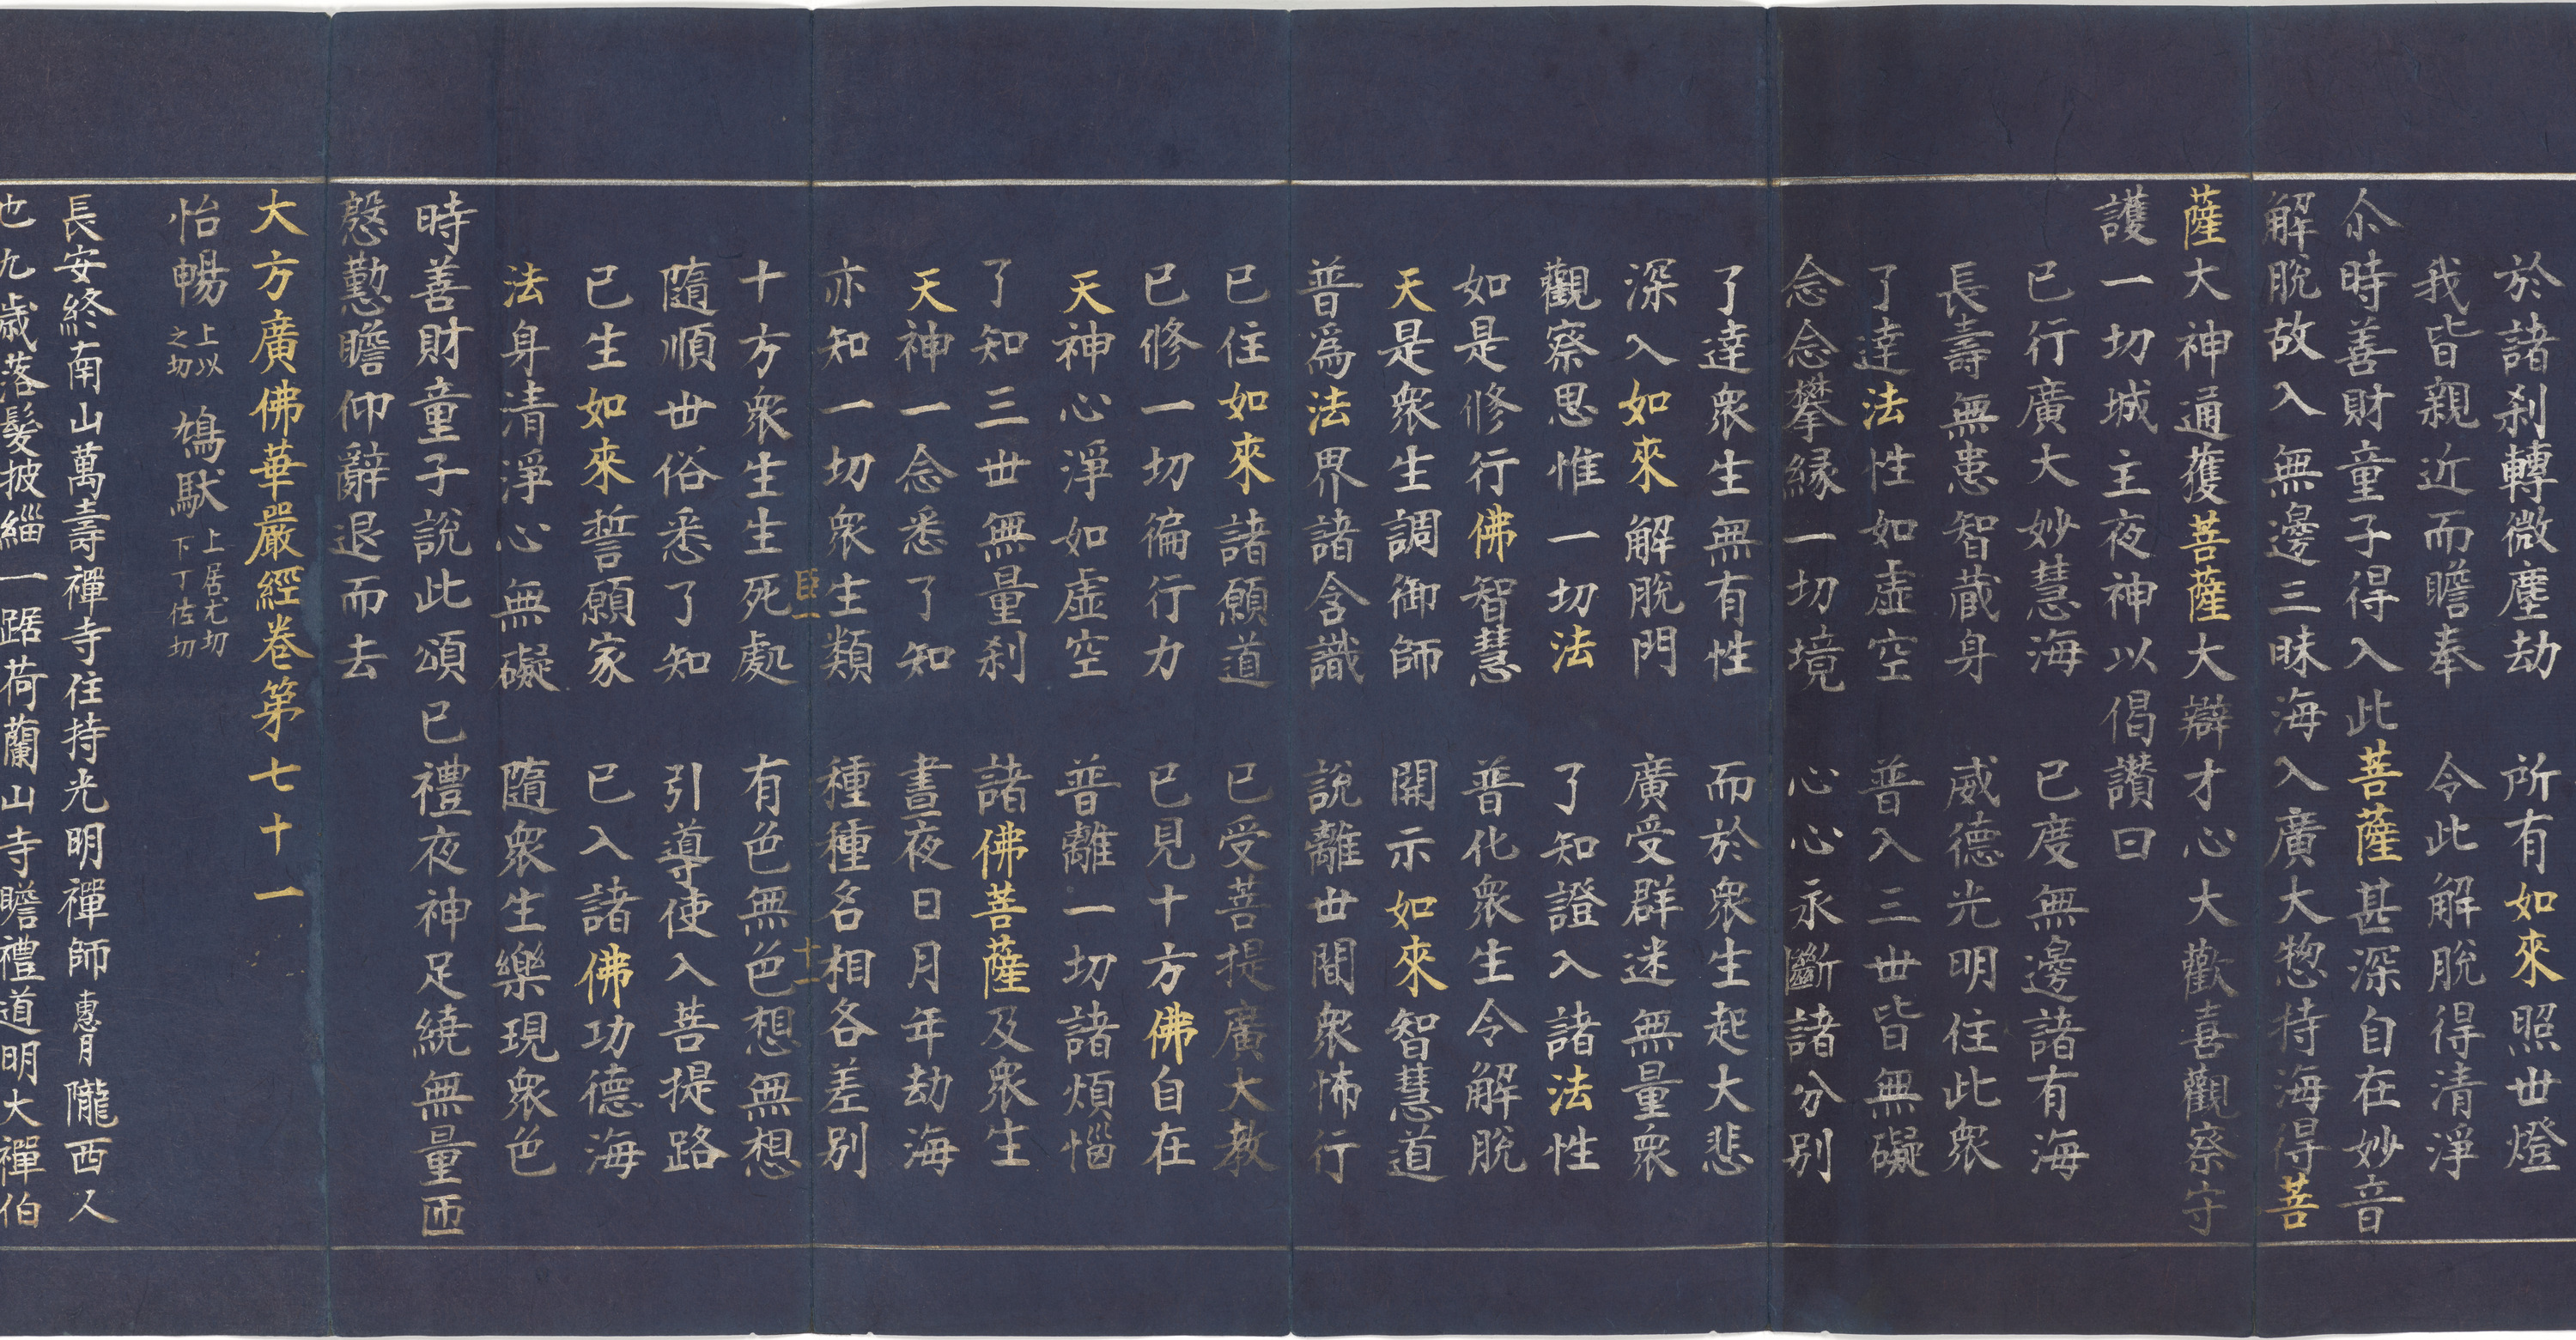 於諸刹轉微塵劫　所有如來照世燈
我皆親近而瞻奉　令此解脫得清淨
尒時善財童子得入此菩薩甚深自在妙音
解脫故入無邊三昧海入廣大惣持海得菩
薩大神通獲菩薩大辯才心大歡喜觀察守
護一切城主夜神以偈讃曰
已行廣大妙慧海　已度無邊諸有海
長壽無患智蔵身　威德光明住此衆
了達法性如虛空　普入三世皆無礙
念念攀緣一切境　心心永斷諸分別
了達衆生無有性　而於衆生起大悲
深入如來解脫門　廣受群迷無量衆
觀察思惟一切法　了知證入諸法性
如是修行佛智慧　普化衆生令解脫
天是衆生調御師　開示如來智慧道
普爲法界諸含識　說離世間衆怖行
已住如來諸願道　已受菩提廣大教
已修一切徧行力　已見十方佛自在
天神心淨如虛空　普離一切諸煩惱
了知三世無量刹　諸佛菩薩及衆生
天神一念悉了知　晝夜日月年劫海
亦知一切衆生類　種種名相各差別
臣一　十一
十方衆生生死處　有色無色想無想
隨順世俗悉了知　引導使入菩提路
已生如來誓願家　已入諸佛功德海
法身清淨心無礙　隨衆生樂現衆色
時善財童子說此頌已禮夜神足繞無量匝
慇懃瞻仰辭退而去
大方廣佛華嚴經卷第七十一
怡暢上以之切　鳩馱上居尤切下丁佐切
長安終南山萬壽禪寺住持光明禪師惠月隴西人
也九歲落髮披緇一踞荷蘭山寺瞻禮道明大禪伯